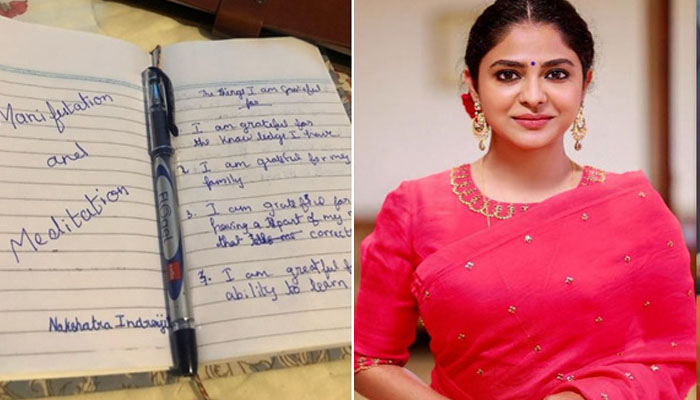 Manifutation
and
Meditation
Nakshatra Indrajit
The things I am Grateful
for
I am grateful for
the knowledge I have
2. I am grateful for my
family
3. I am grateful for
having a part of my
that correct
4. I am greatful f
ability to learn